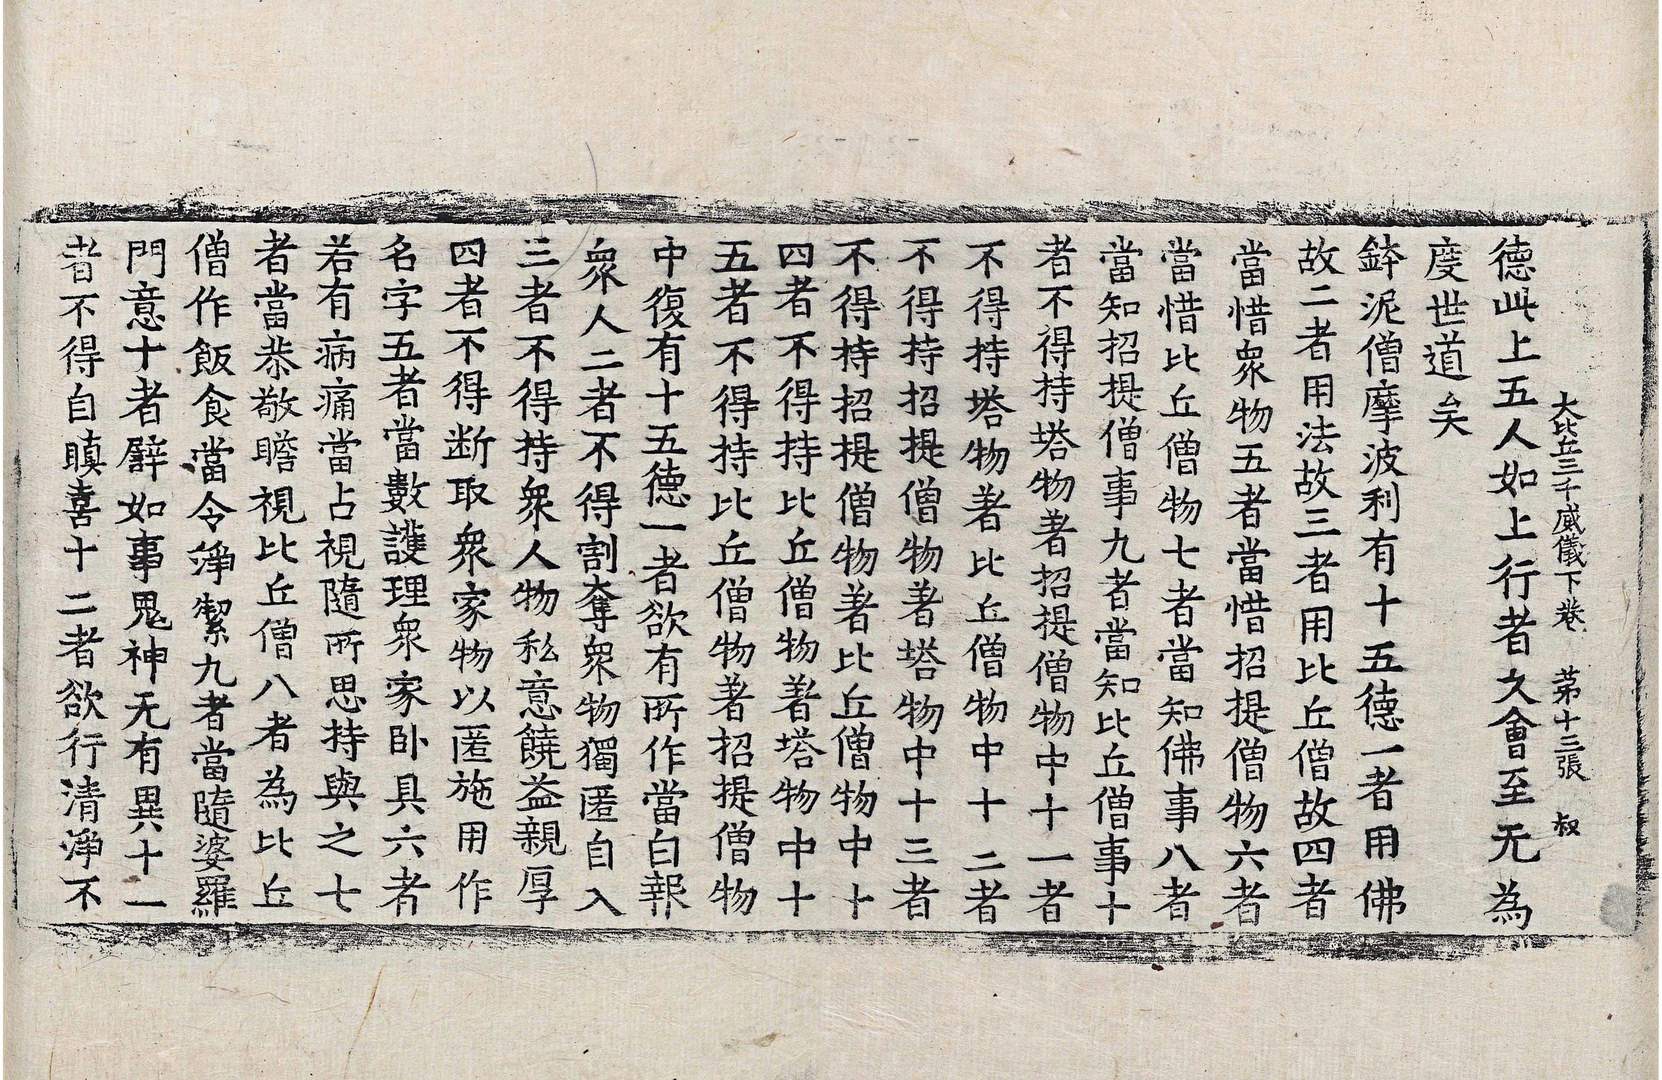 大比丘三千威儀下卷 第十三張 叔
德此上五人如上行者久會至无為
度世道矣
鉢泥僧摩波利有十五德一者用佛
故二者用法故三者用比丘僧故四者
當惜衆物五者當惜招提僧物六者
當惜比丘僧物七者當知佛事八者
當知招提僧事九者當知比丘僧事十
者不得持塔物著招提僧物中十一者
不得持塔物著比丘僧物中十二者
不得持招提僧物著塔物中十三者
不得持招提僧物著比丘僧物中十
四者不得持比丘僧物著塔物中十
五者不得持比丘僧物著招提僧物
中復有十五德一者欲有所作當白報
衆人二者不得割奪衆物獨匿自入
三者不得持衆人物私意饒益親厚
四者不得断取衆家物以匿施用作
名字五者當數護理衆家卧具六者
若有病痛當占視隨所思持與之七
者當恭敬瞻視比丘僧八者為比丘
僧作飯食當令淨潔九者當隨婆羅
門意十者辟如事鬼神无有異十一
者不得自瞋喜十二者欲行清淨不